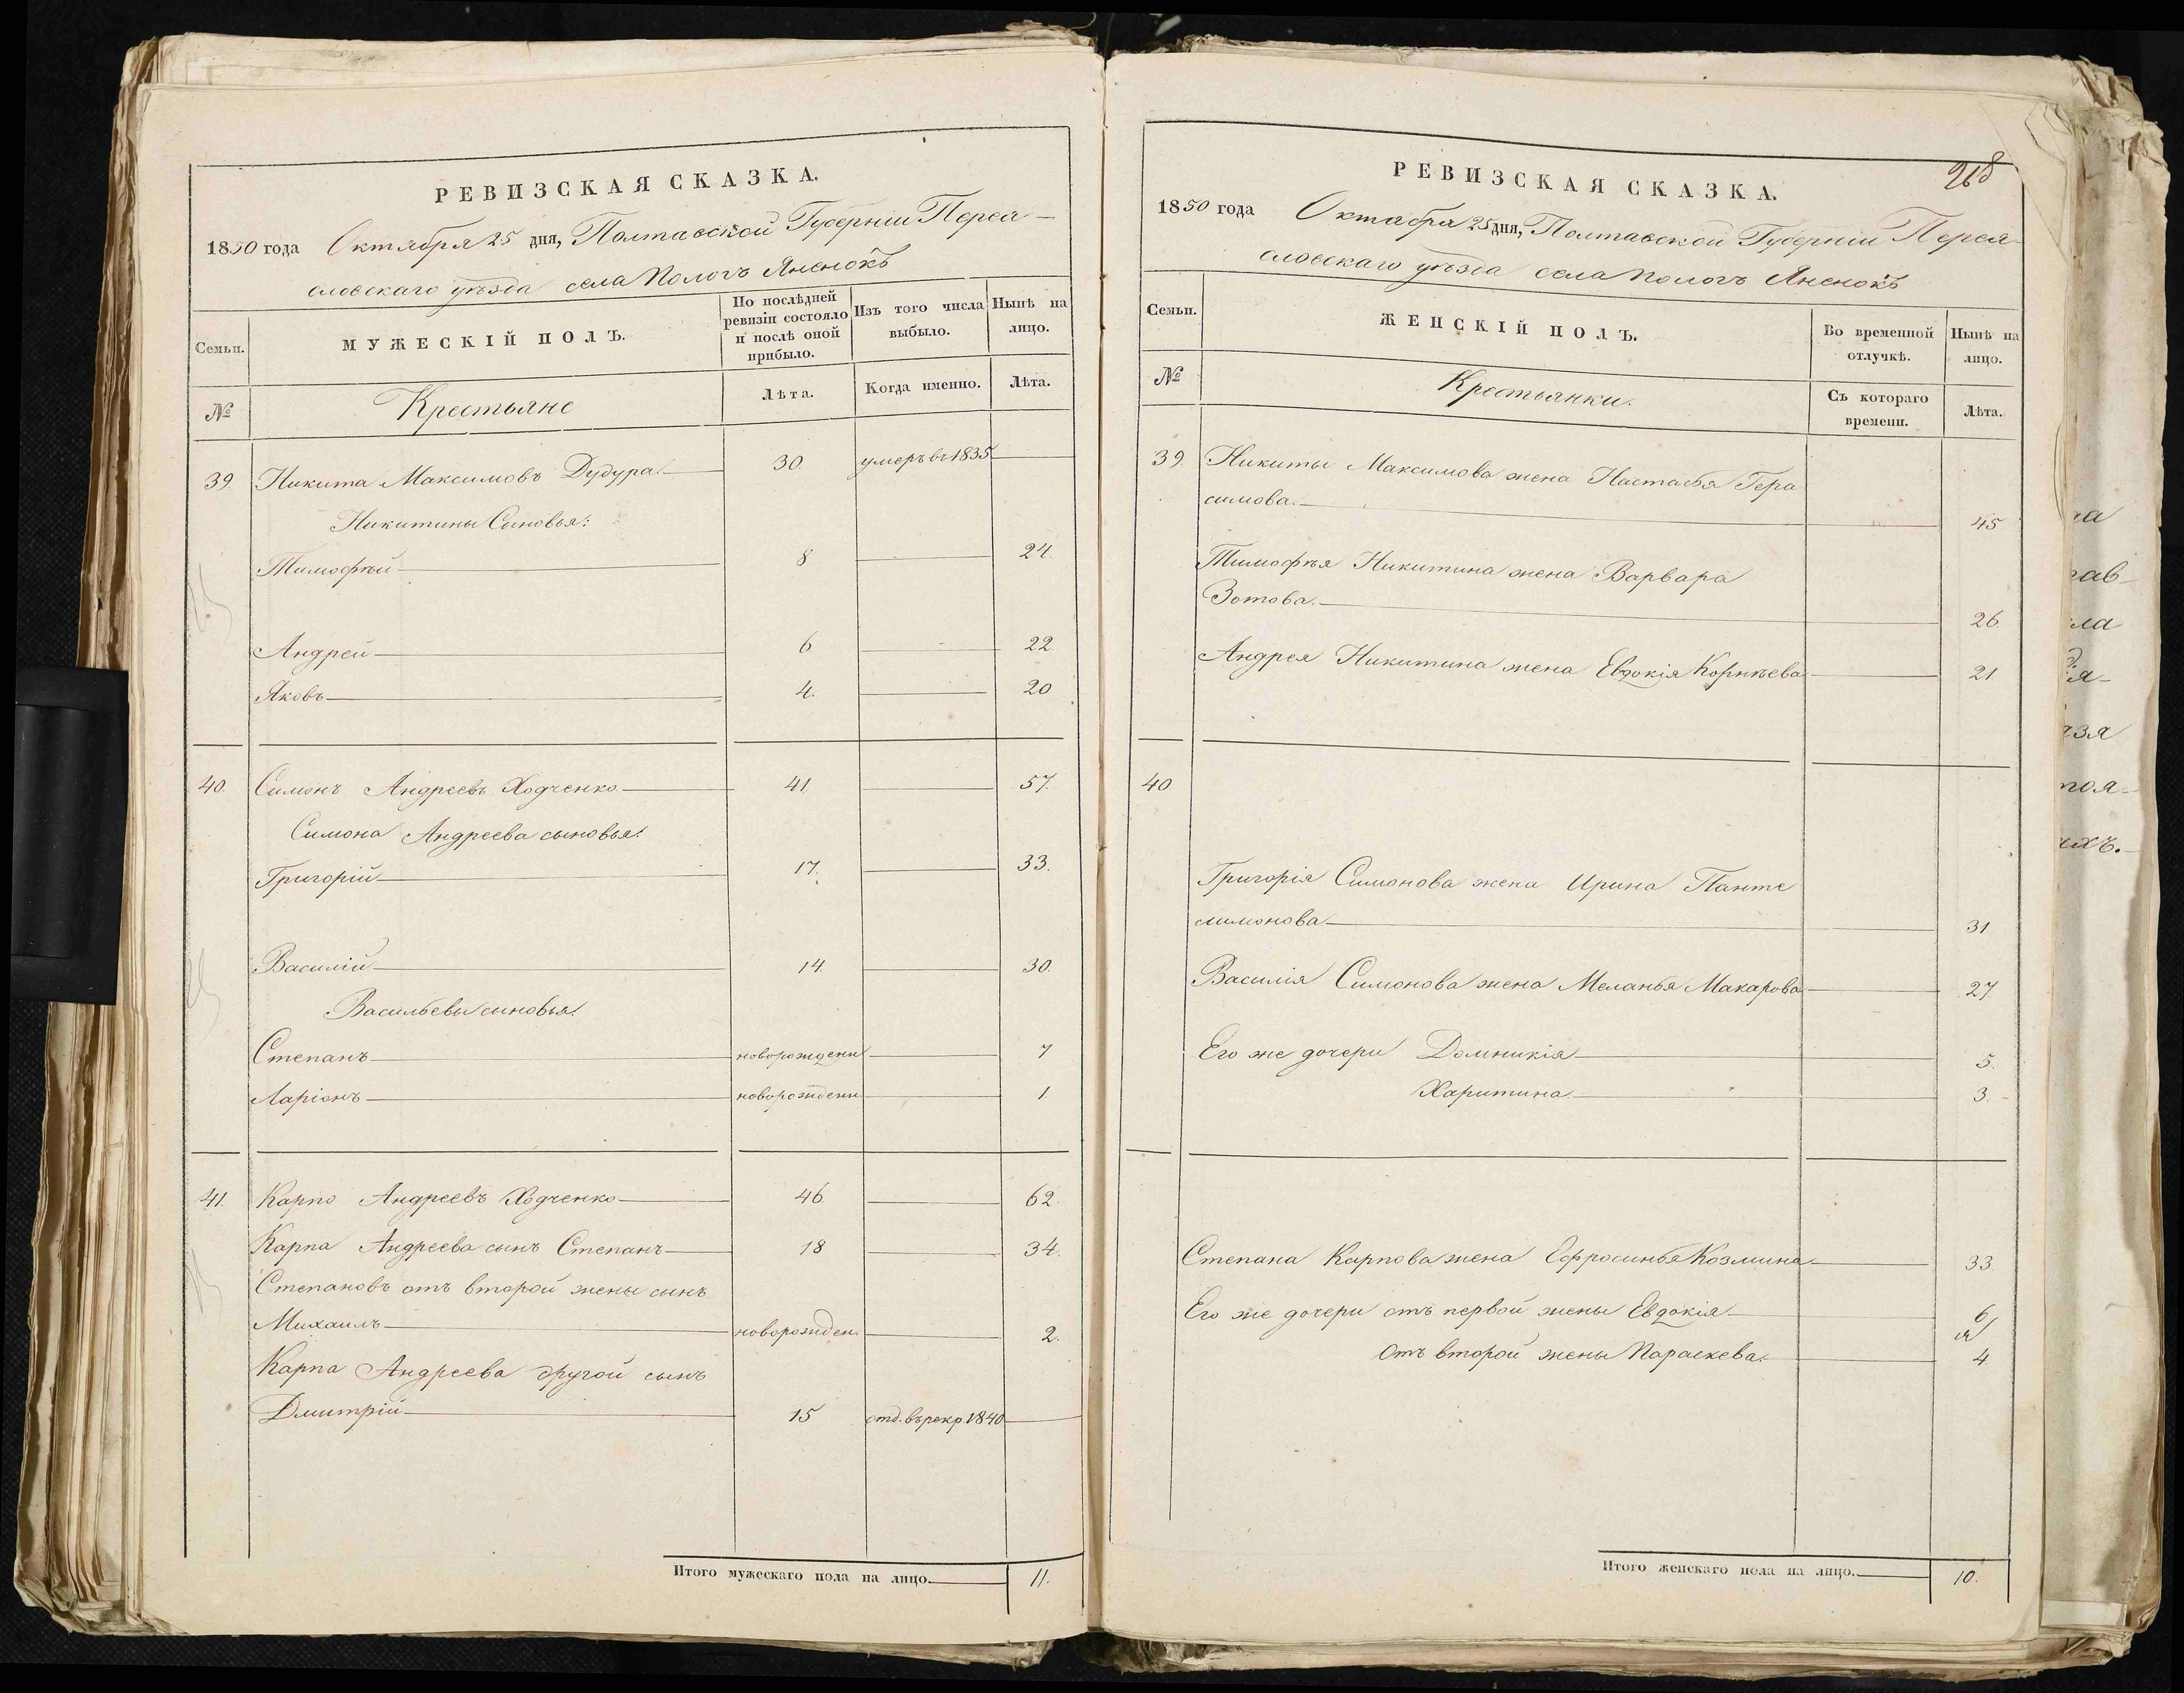 РЕВИЗСКАЯ СКАЗКА.
1850 года Октября 25 дня, Полтавской Губерніи Перея-
словскаго уѣзда села Пологъ Яненокъ
Семьи. МУЖЕСКІЙ ПОЛЪ. По послѣдней ревизіи состояло и послѣ оной прибыло. Изъ того числа выбыло. Нынѣ на лицо.
№ Крестьяне Лѣта. Когда именно. Лѣта.
39. Никита Максимовъ Дудура. 30. умеръ въ 1835
Никитины Сыновья:
Тимофѣй 8 24.
Андрей 6 22.
Яковъ 4. 20
40. Симонъ Андреевъ Ходченко 41. 57.
Симона Андреева сыновья:
Григорій 17. 33.
Василій 14. 30.
Васильевы сыновья:
Степанъ новорожденн 7
Ларіонъ новорожденн 1.
41. Карпо Андреевъ Ходченко 46. 62.
Карпа Андреева сынъ Степанъ 18 34.
Степановъ отъ второй жены сынъ
Михаилъ новорожден. 2.
Карпа Андреева другой сынъ
Дмитрій 15 отд. въ рекр. 1840
Итого мужескаго пола на лицо. 11.
268
РЕВИЗСКАЯ СКАЗКА.
1850 года Октября 25 дня, Полтавской Губерніи Перея-
словскаго уѣзда села Пологъ Яненокъ
Семьи. ЖЕНСКІЙ ПОЛЪ. Во временной отлучкѣ. Нынѣ на лицо.
№ Крестьянки. Съ котораго времени. Лѣта.
39. Никиты Максимова жена Настасья Гера
симова. 45
Тимофѣя Никитина жена Варвара
Зотова. 26.
Андрея Никитина жена Евдокія Корнѣева 21
40
Григорія Симонова жена Ирина Панте
лимонова 31.
Василія Симонова жена Меланья Макарова 27.
Его же дочери Домникія 5.
Харитина 3.
Степана Карпова жена Ефросинья Козмина 33.
Его же дочери отъ первой жены Евдокія 6
Отъ второй жены Параскева. 4.
Итого женскаго пола на лицо. 10.